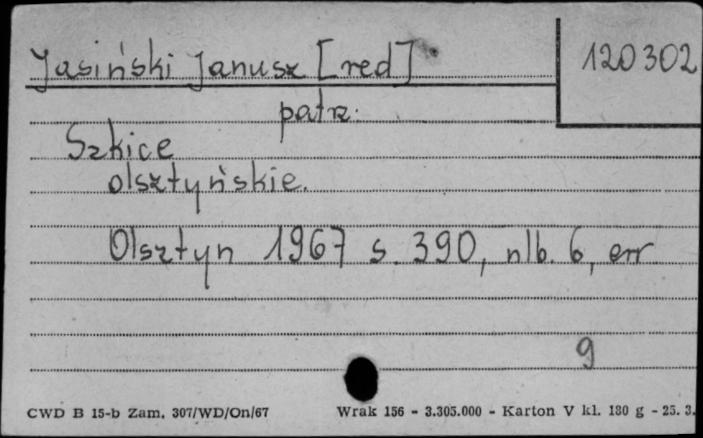 Jasiński Janusz [red]
120302
patrz.
Szkice
olsztyńskie.
Olsztyn 1967 s. 390, nlb. 6, err
9
CWD B 15-b Zam. 307/WD/On/67 Wrak 156 - 3.305.000 - Karton V kl. 180 g - 25. 3.